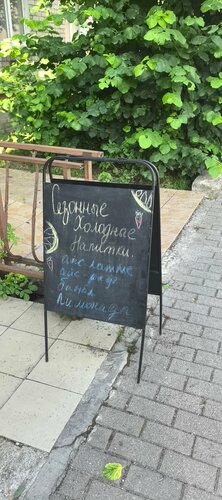 Сезонные
Холодные
Напитки.
айс латте
айс раф
бамбл
Лимонады